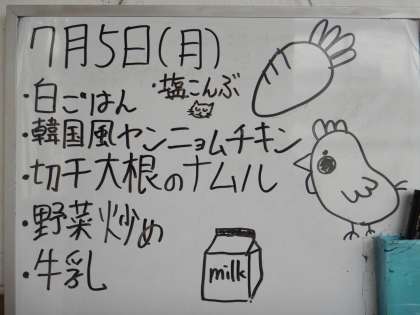 7月5日(月)
・白ごはん ・塩こんぶ
・韓国風ヤンニョムチキン
・切干大根のナムル
・野菜炒め
・牛乳
milk